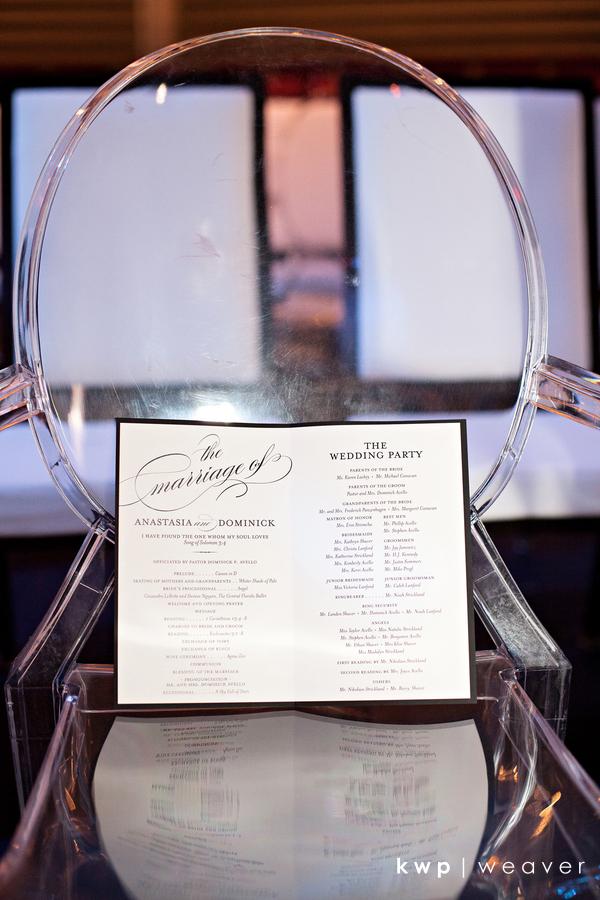 the
marriage of
ANASTASIA and DOMINICK
I HAVE FOUND THE ONE WHOM MY SOUL LOVES
Song of Solomon 3:4
OFFICIATED BY PASTOR DOMINICK F. AVELLO
PRELUDE . . . . . . Canon in D
SEATING OF MOTHERS AND GRANDPARENTS . . . Whiter Shade of Pale
BRIDE'S PROCESSIONAL . . . . . . Angel
The Central Florida Ballet
WELCOME AND OPENING PRAYER
MESSAGE
READING . . . . . . 1 Corinthians 13:4-8
CHARGES TO BRIDE AND GROOM
READING
EXCHANGE OF VOWS
EXCHANGE OF RINGS
WINE CEREMONY
COMMUNION
BLESSING OF THE MARRIAGE
PRONOUNCIATION
MR. AND MRS. DOMINICK AVELLO
RECESSIONAL . . . . . . A Sky Full of Stars
THE
WEDDING PARTY
PARENTS OF THE BRIDE
Ms. Karen Luckey • Mr. Michael Conavan
PARENTS OF THE GROOM
Pastor and Mrs. Dominick Avello
GRANDPARENTS OF THE BRIDE
Mr. and Mrs. Frederick • Mrs. Margaret Conavan
MATRON OF HONOR BEST MEN
Mrs. Erin Mr. Phillip Avello
Mr. Stephen Avello
BRIDESMAIDS GROOMSMEN
Mrs. Kathryn Shaver Mr. Jay
Mrs. Christa Lunsford Mr. H.J. Kennedy
Mrs. Katherine Strickland Mr. Justin Sommers
Mrs. Kimberly Avello Mr. Mike Pragl
Mrs. Kerri Avello
JUNIOR BRIDESMAID JUNIOR GROOMSMAN
Miss Victoria Lunsford Mr. Caleb Lunsford
RINGBEARER . . . . . . Mr. Noah Strickland
RING SECURITY
Mr. Landen Shaver • Mr. Dominick Avello • Mr. Noah Lunsford
ANGELS
Miss Taylor Avello • Miss Natalia Strickland
Mr. Stephen Avello • Mr. Benjamin Avello
Mr. Ethan Shaver • Miss Khloe Shaver
Miss Madalyn Strickland
FIRST READING BY Mr. Nikolaus Strickland
SECOND READING BY Mrs. Joyce Avello
USHERS
Mr. Nikolaus Strickland • Mr. Barry Shaver
kwp | weaver